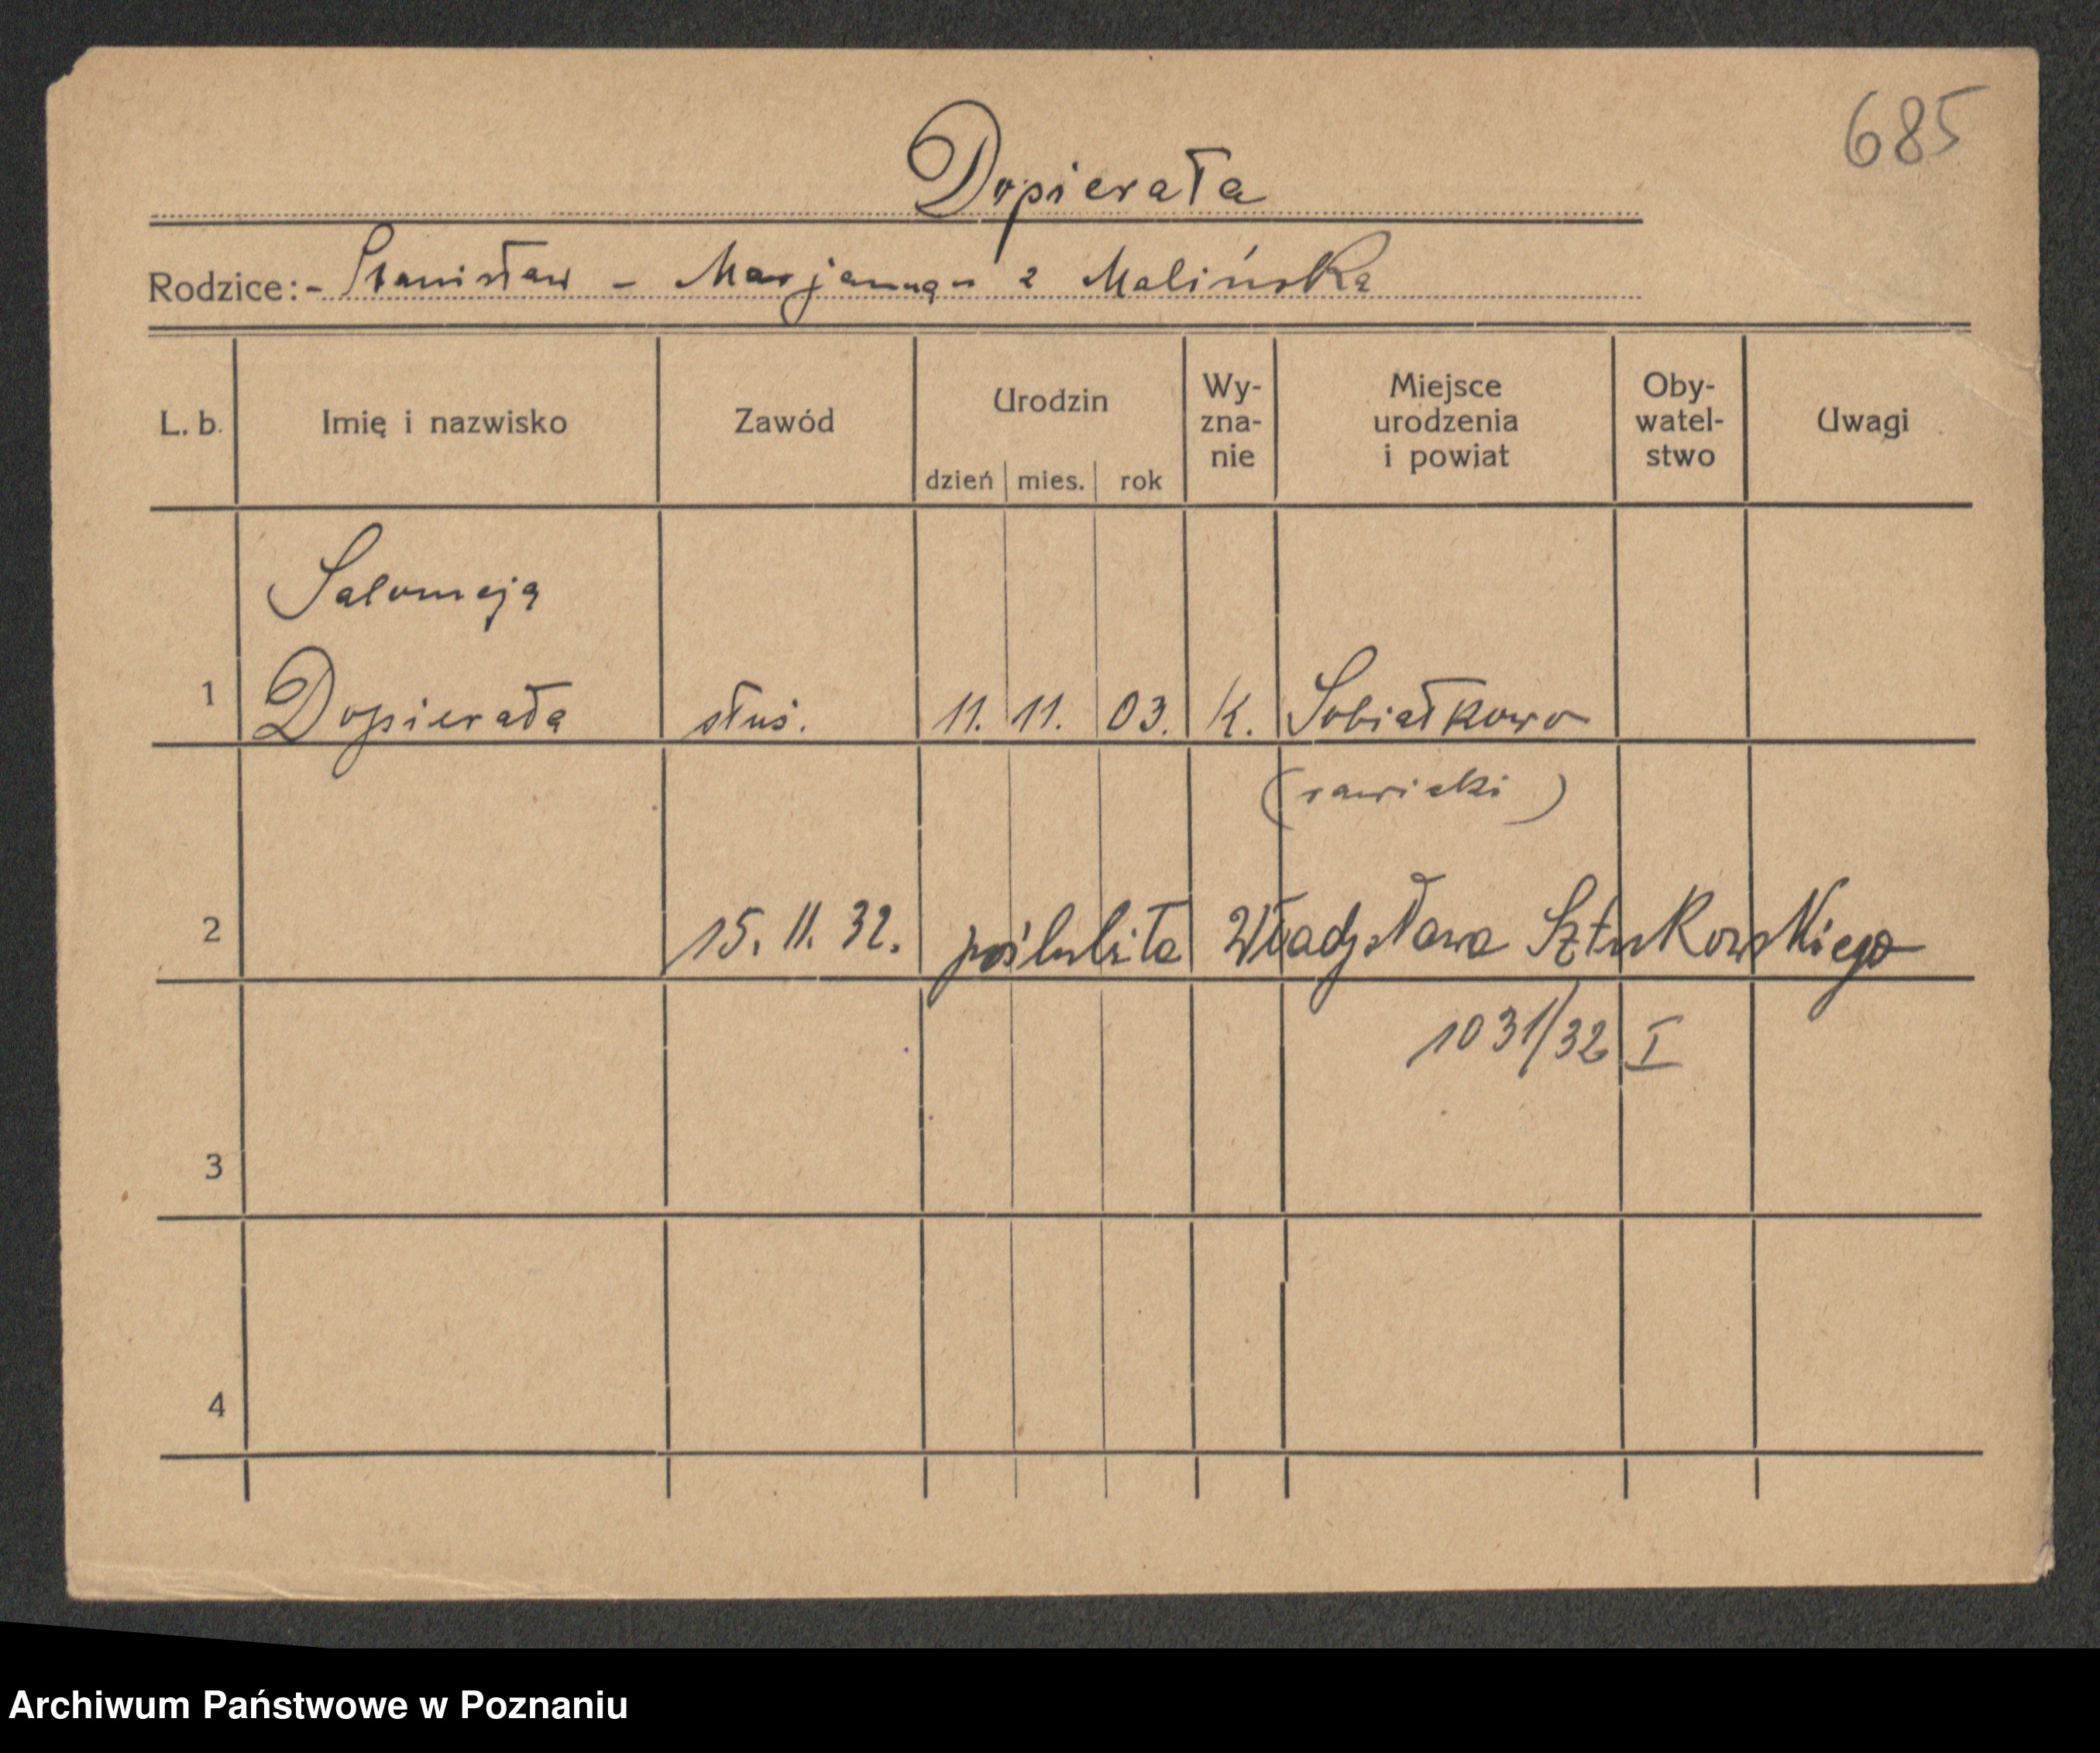 685
Dopierała
Rodzice: - Stanisław - Marjanna z Malińska
L. b. Imię i nazwisko Zawód Urodzin dzień mies. rok Wy-zna-nie Miejsce urodzenia i powiat Oby-watel-stwo Uwagi
Salomeja
1 Dopierała służ. 11. 11. 03. K. Sobiałkowo
(rawicki)
2 15. II. 32. poślubiła Władysława Sztukowskiego
1031/32 I
3
4
Archiwum Państwowe w Poznaniu